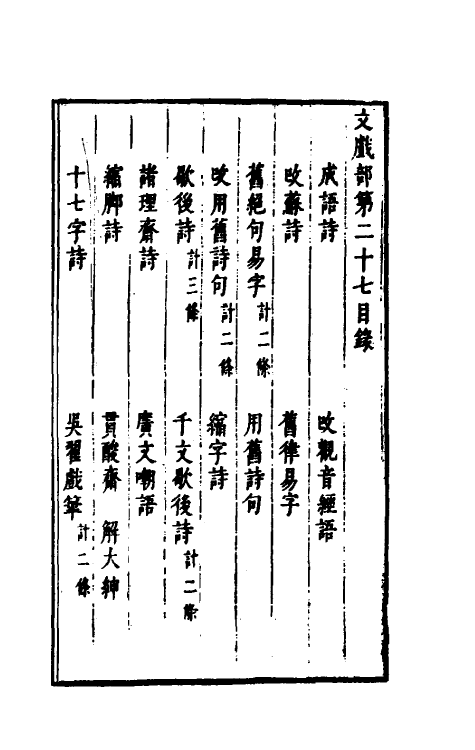 文戲部第二十七目錄
成語詩　改觀音經語
改蘇詩　舊律易字
舊絕句易字計二條　用舊詩句
改用舊詩句計二條　縮字詩
歇後詩計三條　千文歇後詩計二條
諸理齋詩　廣文嘲語
縮脚詩　貫酸齋　解大紳
十七字詩　吳翟戲筆計二條